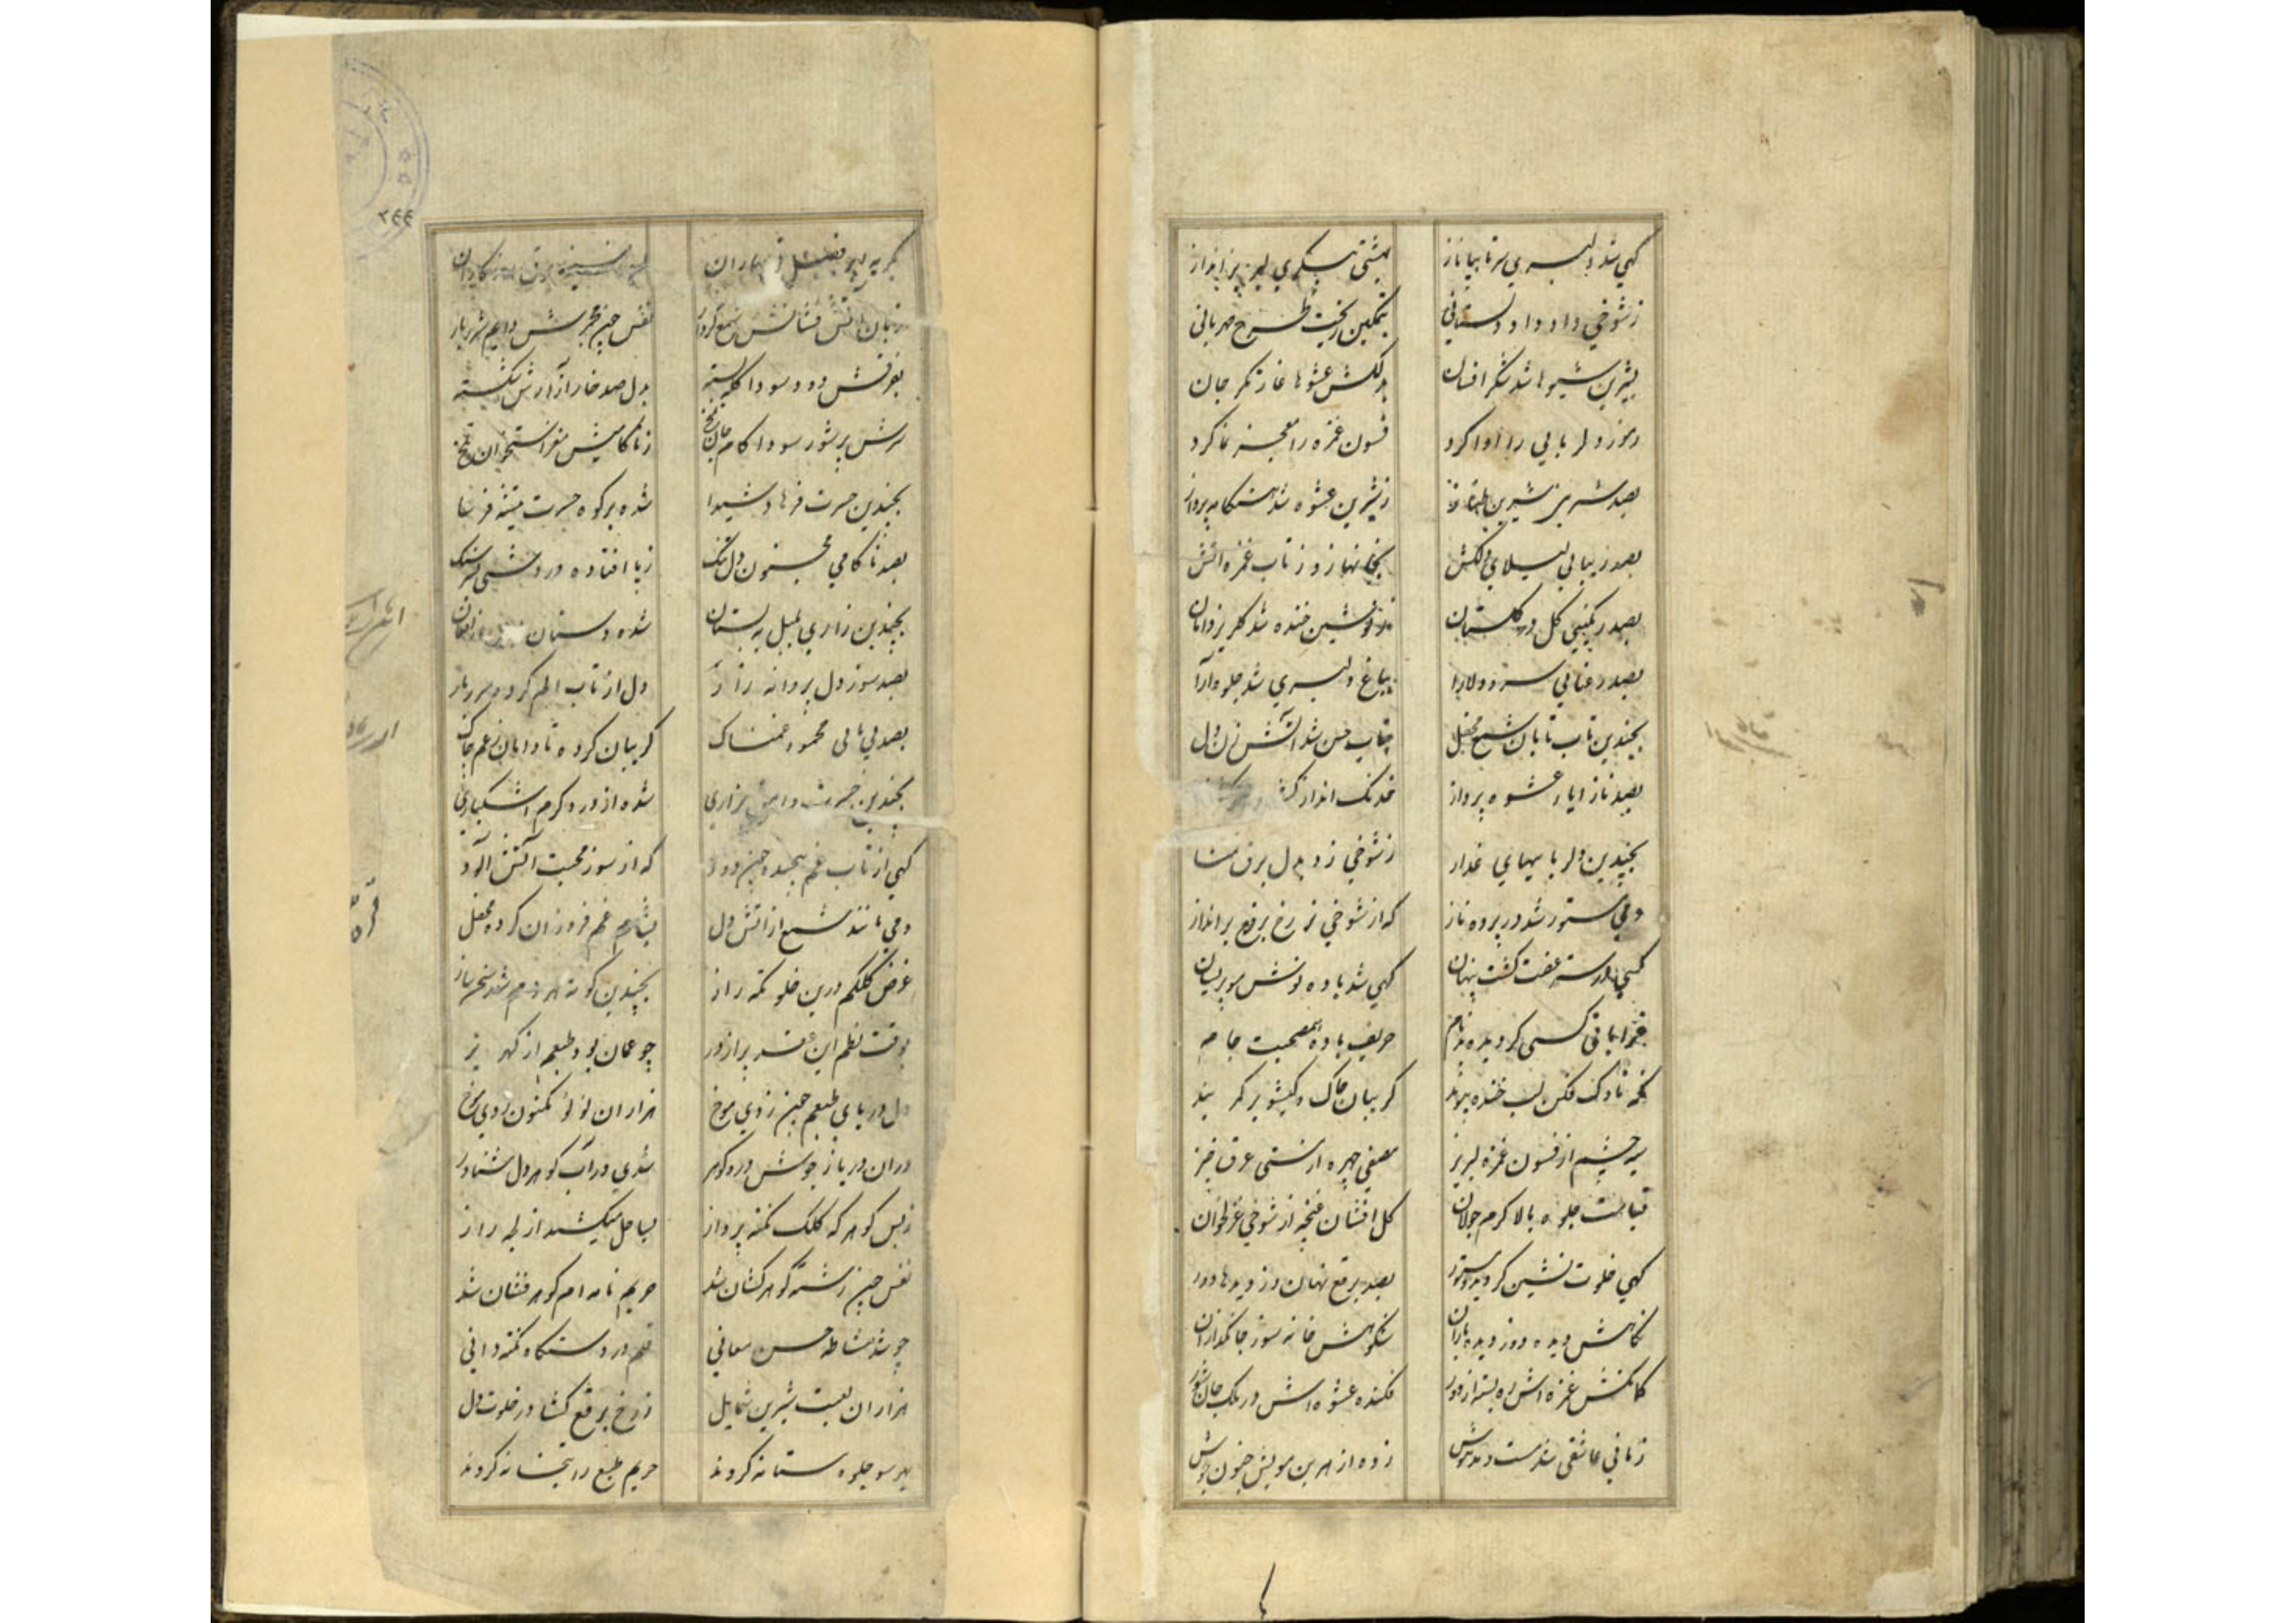 کهی شد دلبری سرتا بپا ناز بهشتی پیکری لبریز انداز
ز شوخی داد داد دلستانی بتمکین ریخت طرح مهربانی
بشیرین شیوها شد شکر افشان بدلکش عشوها غارتکر جان
رموز دلربایی را ادا کرد فسون غمزه را معجز نما کرد
بصد شیرین طناز ز شیرین عشوه شد هنکامه پرداز
بصد زیبایی لیلای دلکش نهاز و ز تاب غمزه اتش
بصد رنکینی کل در کلستان ز نوشین خنده شد
بصد رعنایی سرو دلارا بباغ دلبری شد جلوه آرا
بچندین تاب تابان شمع محفل بتاب حسن شد آتش زن دل
بصد ناز ایاز عشوه پرداز خدنک انداز
بچندین دلرباییهای غدار ز شوخی زد بدل برق
دمی مستور شد در پرده ناز که از شوخی ز رخ برقع برانداز
کشت پنهان کهی شد باده نوش مو پریشان
حریف باده هم صحبت جام
نکه ناوک فکن لب خنده پیوند کریبان چاک و کیسو بر کمر بند
سیه چشم از فسون غمزه لبریز صفی چهره از مستی عرق خیز
قیامت جلوه بالا کرم جولان کل افشان غنچه از شوخی غزلخوان
کهی خلوت نشین کردید و مستور بصد برقع نهان از دیدها دور
نکاهش دیده دوز دیده بازان نکوهش خانه سوز جانکدازان
کمانکش غمزه اش ره بسته از دور فکنده عشوه اش در ملک جان شور
زمانی عاشقی شد مست و مدهوش زده از هر بن مویش جنون جوش
۲۴۴
بکریه ابر فصل نوبهاران
زبان آتش فشانش شمع کردار نفس چون مجمرش دایم شرربار
بفرقش دود سودا کله بسته بدل صد خار ازارش شکسته
سرش پرشور سودا کام جان تلخ ز ناکامیش مغز استخوان تلخ
بچندین حسرت فرهاد شیدا شده بر کوه حسرت تیشه فرسا
بصد ناکامی مجنون دل تنک ز پا افتاده در دشتی
بچندین زاری بلبل به بستان شده دستان
بصد سوز دل پروانه زار دل از تاب الم کرده شرربار
بصد بی تابی محمود غمناک کریبان کرده تا دامان ز غم چاک
بچندین حسرت وامق بزاری شده از درد کرم اشکباری
کهی از تاب غم پیچیده چون دود که از سوز محبت آتش آلود
دمی مانند شمع از اتش دل بشام غم فروزان کرده محفل
غرض کلکم درین خلوتکه راز بچندین کونه هر دم شد سخن ساز
بوقت نظم این عقد پر از در چو عمان بود طبعم از کهر پر
دل دریای طبعم چون زدی موج هزاران لؤلؤ مکنون زدی موج
دران دریا ز جوش در و کوهر شدی در آب کوهر دل شناور
ز بس کوهر که کلک نکته پرداز بساحل میکشید از لجه راز
نفس چون رشته کوهر کشان شد حریم نامه ام کوهر فشان شد
چو شد مشاطه حسن معانی قلم در دستکاه نکته دانی
هزاران لعبت شیرین شمایل ز رخ برقع کشا در خلوت دل
بهر سو جلوه مستانه کردند حریم طبع را بتخانه کردند